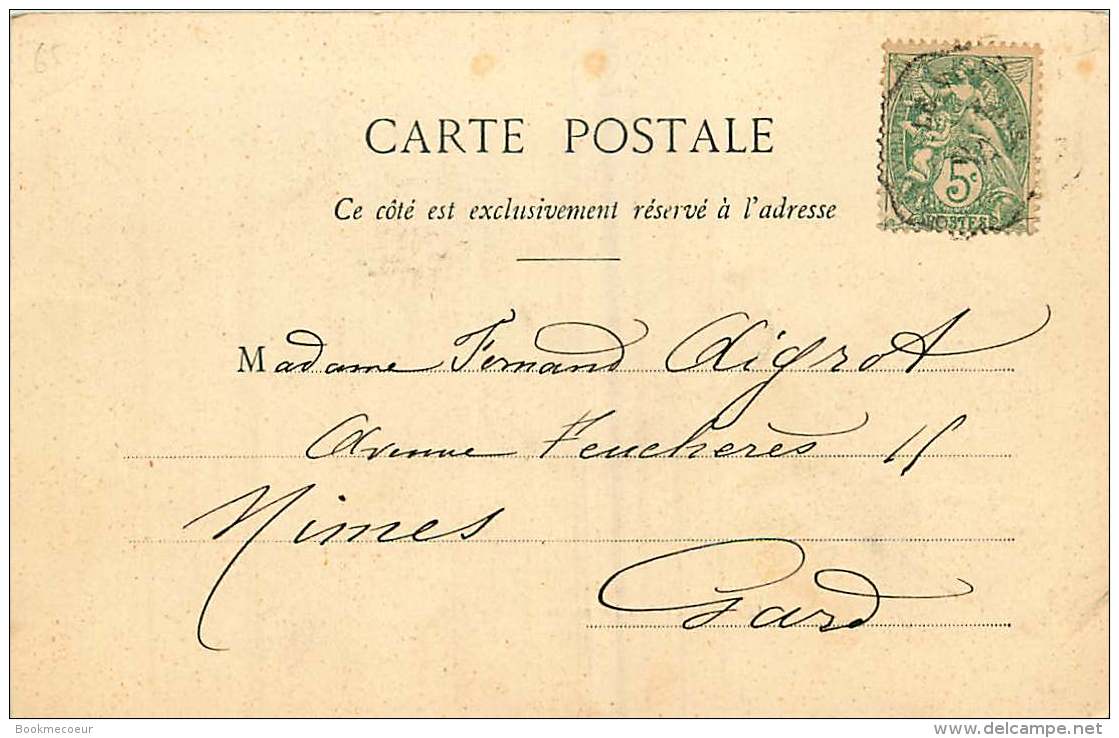 65
CARTE POSTALE
Ce côté est exclusivement réservé à l'adresse
5c
POSTES
Madame Fernand Digrot
Avenue Feuchères 15
Nimes
Gard
Bookmecoeur
www.delcampe.net